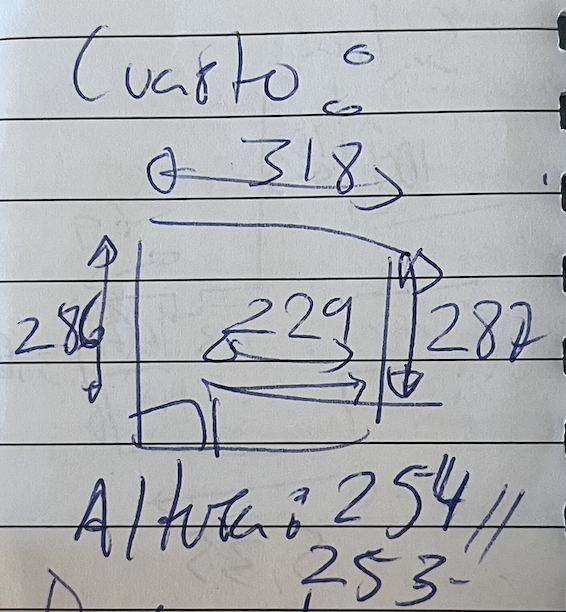 Cuarto:
318
286 229 287
Altura: 254
253-